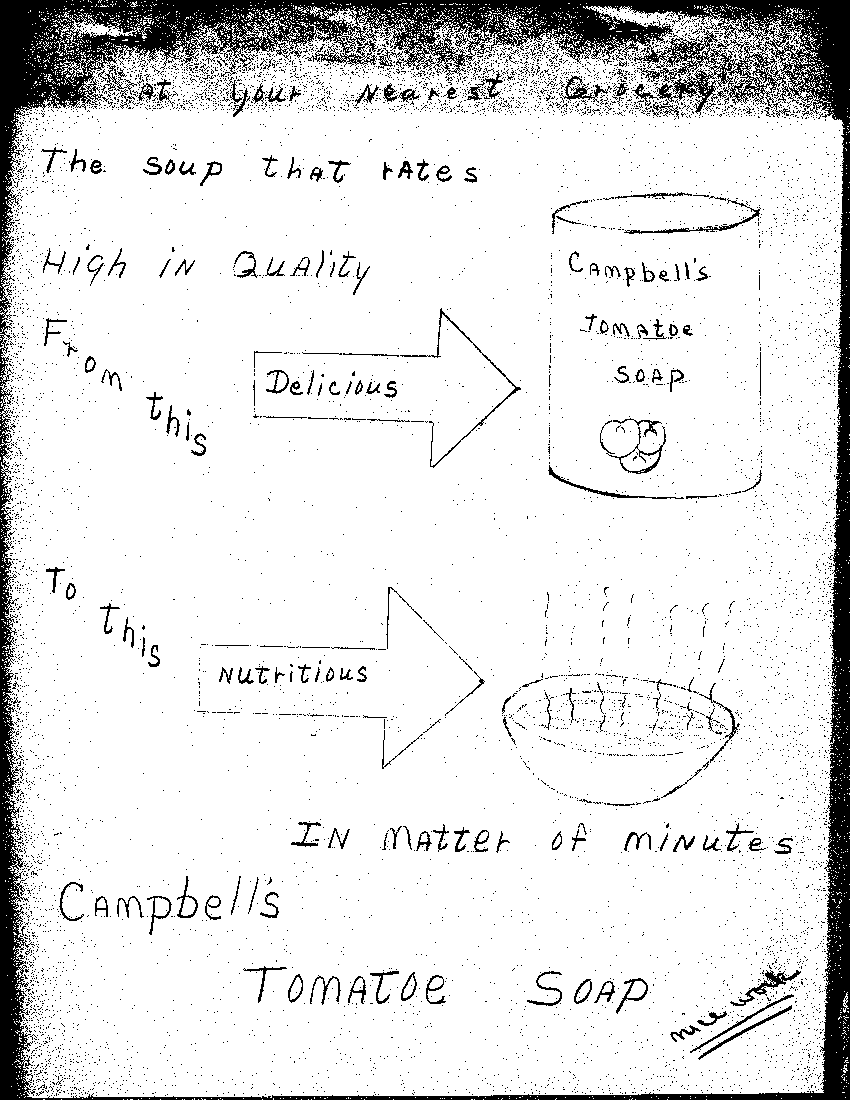 At your Nearest Grocery
The soup that rates
High in Quality
From this
Delicious
Campbell's
Tomatoe
Soap
To this
Nutritious
In matter of minutes
Campbell's
Tomatoe Soap
nice work